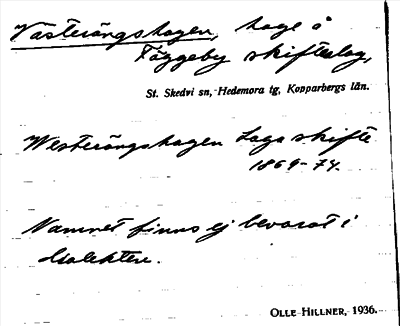 Västerängshagen, hage å
Täggeby skifteslag,
St. Skedvi sn, Hedemora tg, Kopparbergs län.
Westerängshagen Laga skifte
1869-74.
Namnet finns ej bevarat i
dialekten.
OLLE HILLNER, 1936.